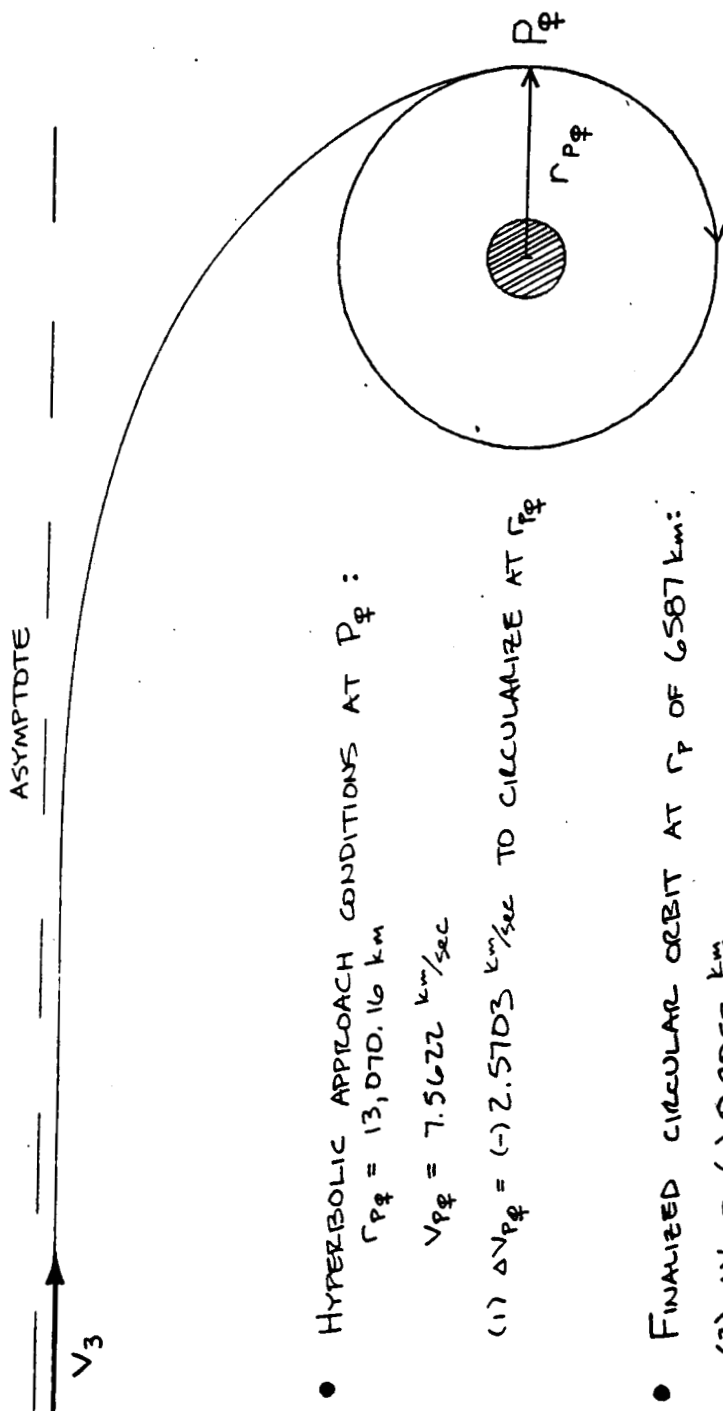 ASYMPTOTE
V₃
P♀
r_P♀
• HYPERBOLIC APPROACH CONDITIONS AT P♀ :
r_P♀ = 13,070.16 km
V_P♀ = 7.5622 km/sec
(1) ΔV_P♀ = (-) 2.5703 km/sec TO CIRCULARIZE AT r_P♀
• FINALIZED CIRCULAR ORBIT AT r_P OF 6587 km: